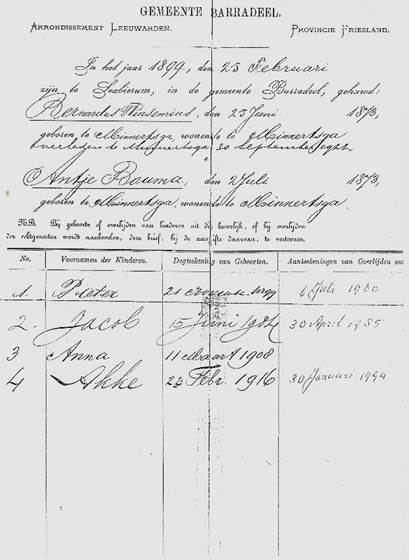 GEMEENTE BARRADEEL.
ARRONDISSEMENT LEEUWARDEN. PROVINCIE FRIESLAND.
In het jaar 1899, den 23 Februari
zijn te Sexbierum, in de gemeente Barradeel, gehuwd:
Bernardus den 23 Juni 1873,
geboren te Minnertsga, wonende te Minnertsga
overleden te Minnertsga 30 September
Antje Bouma, den 2 Juli 1873,
geboren te Minnertsga, wonende te Minnertsga.
N.B. Bij geboorte of overlijden van kinderen uit dit huwelijk, of bij overlijden
der echtgenooten wordt aanbevolen, deze brief, bij de aangifte daarvan, te vertoonen.
No. Voornamen der Kinderen. Dagteekening van Geboorten. Aanteekeningen van Overlijden enz
1. Pieter 21 6 Juli 1960
2. Jacob 15 Juni 30 April 1985
3 Anna 11 Maart 1908
4 Akke 23 Febr. 1916 30 Januari 1994